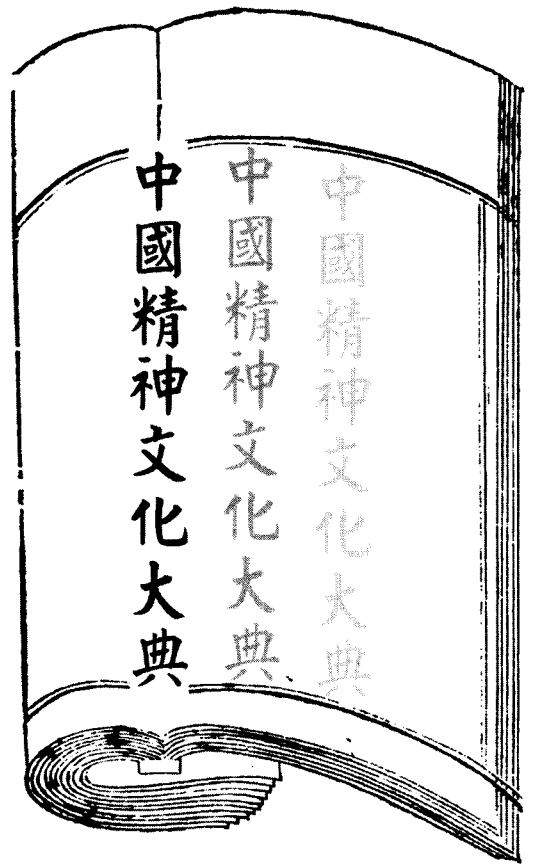 中國精神文化大典
中國精神文化大典
中國精神文化大典